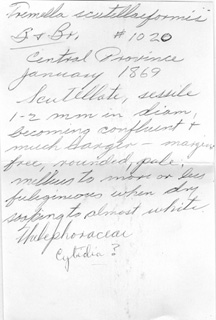 Tremella scutellaeformis
B & Br, #1020
Central Province
January 1869
Scutellate, sessile
1-2 mm in diam,
becoming confluent &
much larger - margin
free, rounded, pale
to more or less
fuligineous when dry
soaking to almost white.
Thelephoraceae
Cytidia?